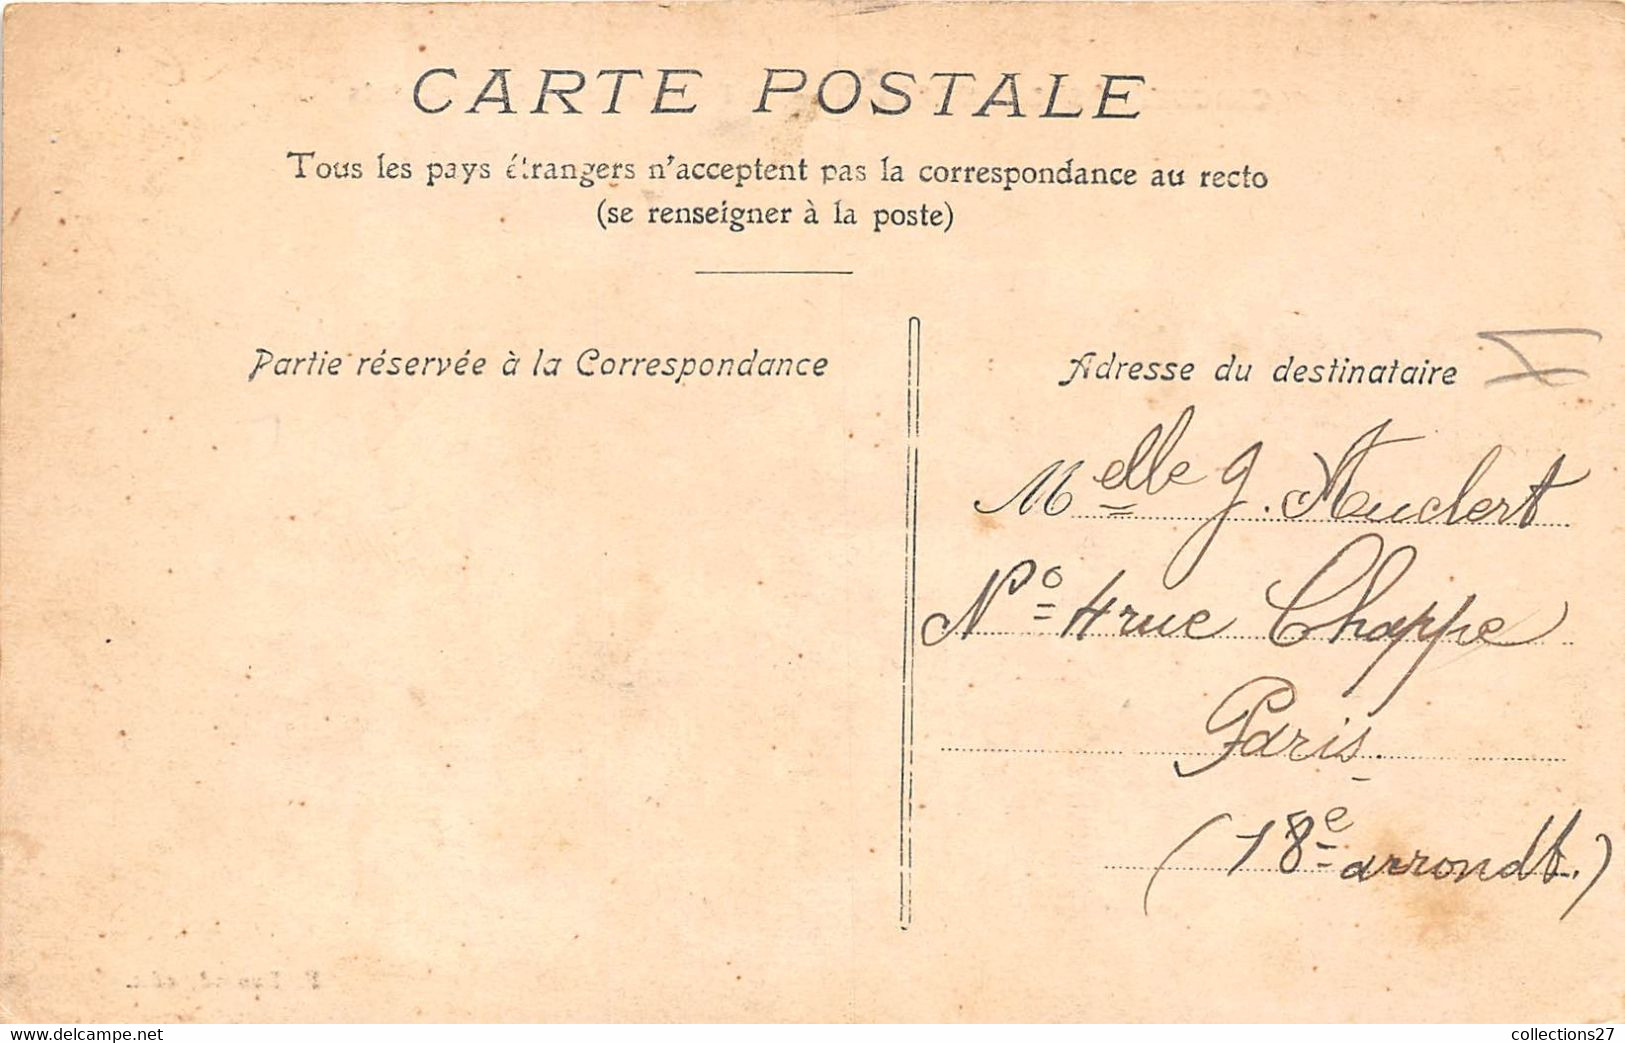 CARTE POSTALE
Tous les pays étrangers n'acceptent pas la correspondance au recto
(se renseigner à la poste)
Partie réservée à la Correspondance
Adresse du destinataire
Melle G.
Nº 4 rue Chappe
Paris.
(18e arrondt.)
www.delcampe.net
collections27